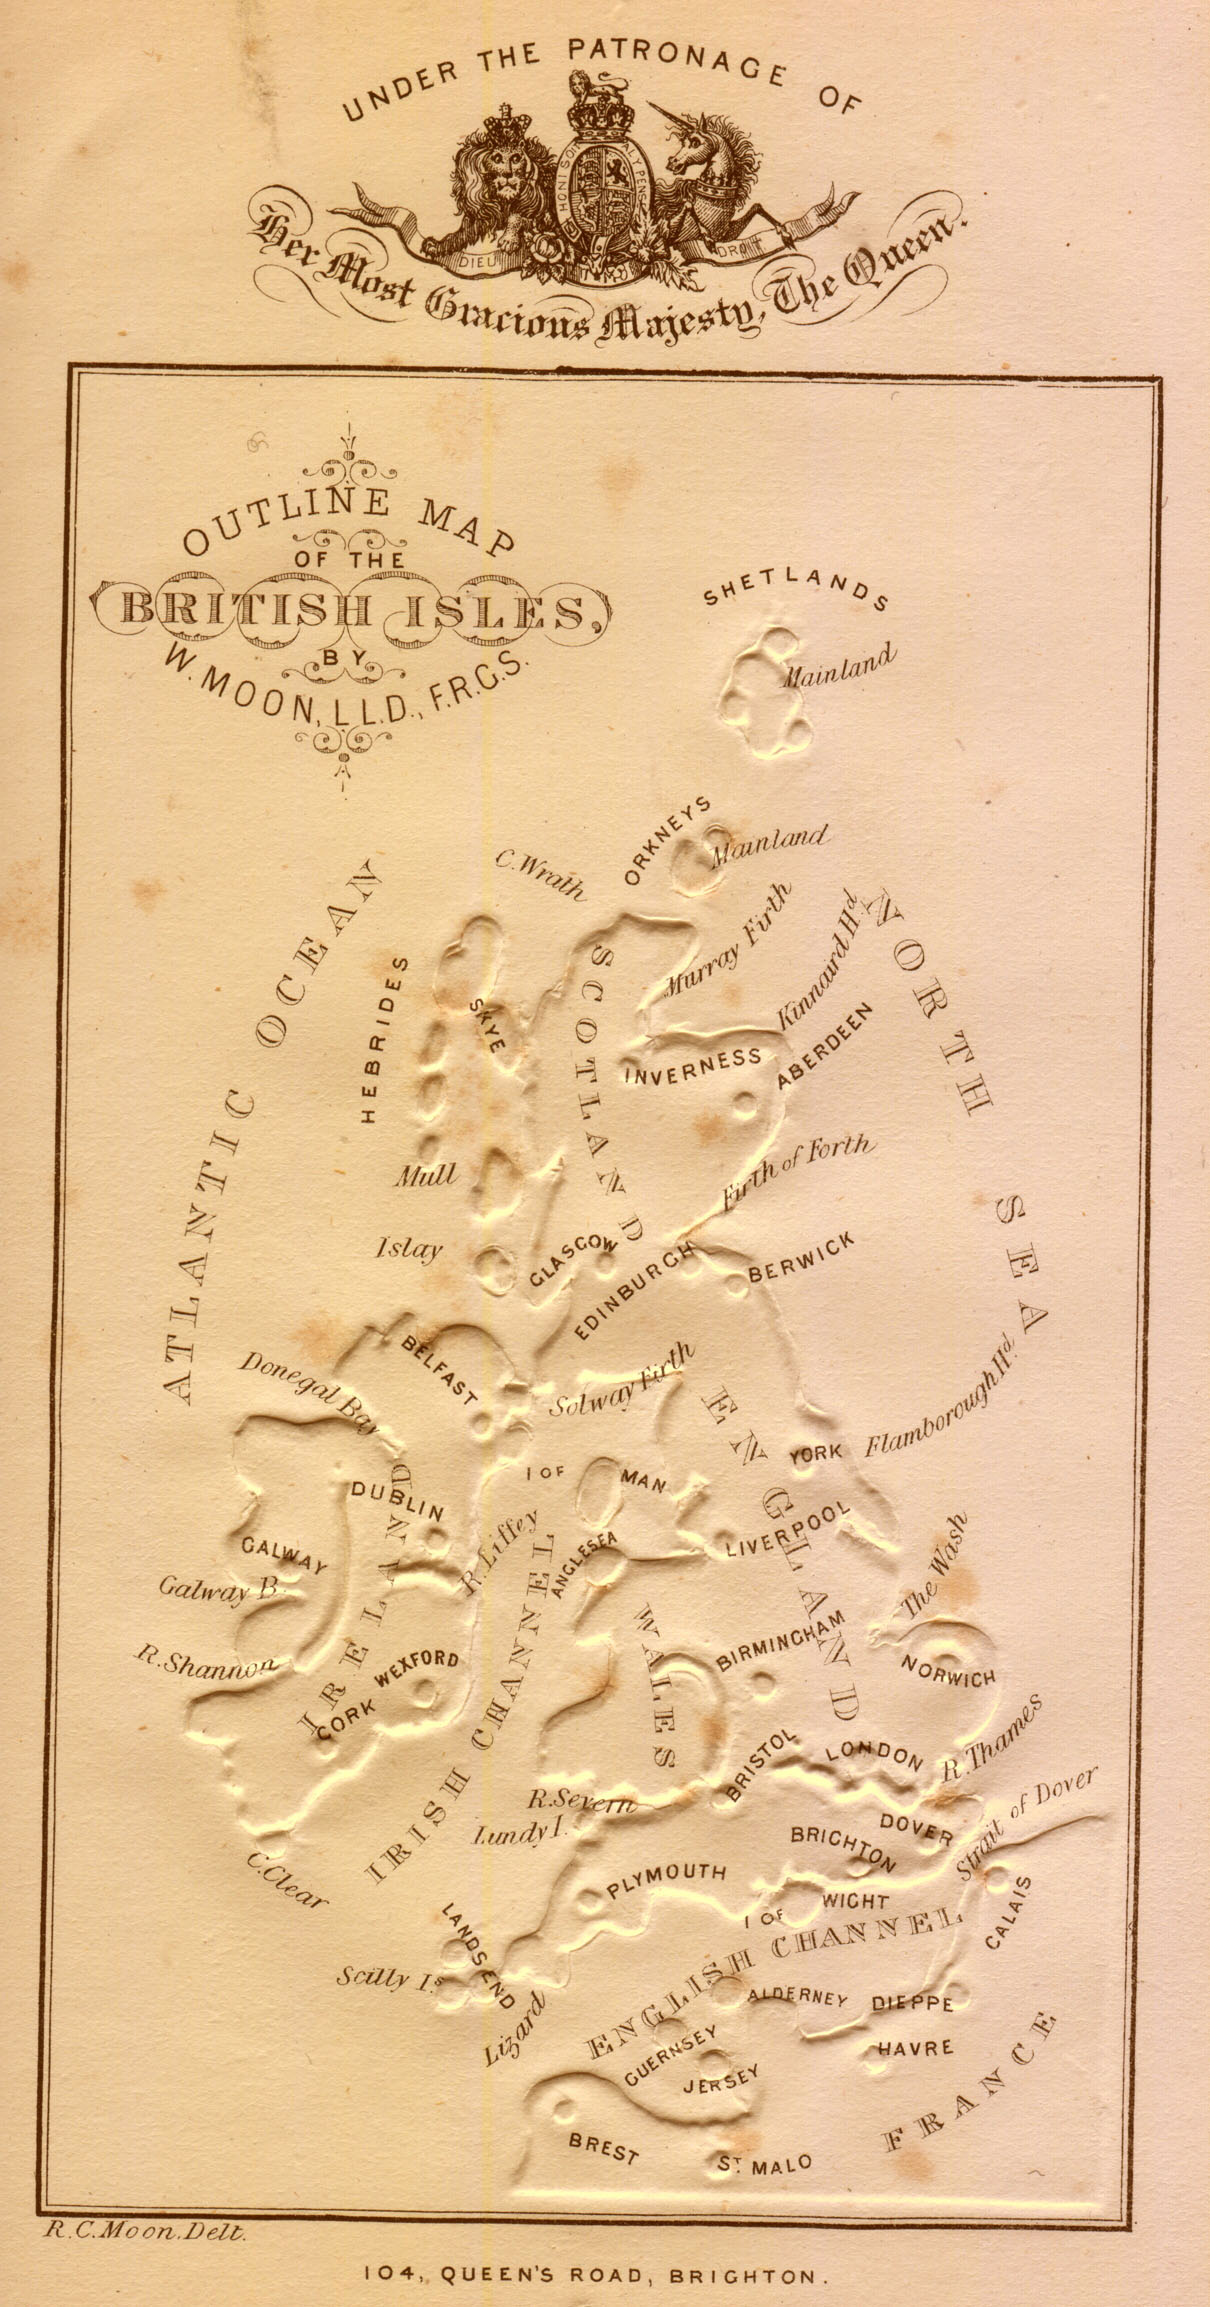 UNDER THE PATRONAGE OF
HONI SOIT
Y PENSE
DIEU
DROIT
Her Most Gracious Majesty, The Queen.
OUTLINE MAP
OF THE
BRITISH ISLES,
BY
W. MOON, LL.D., F.R.G.S.
SHETLANDS
Mainland
ORKNEYS
Mainland
C. Wrath
Murray Firth
Kinnaird Hd.
NORTH SEA
ATLANTIC OCEAN
HEBRIDES
SKYE
SCOTLAND
INVERNESS
ABERDEEN
Mull
Firth of Forth
Islay
GLASGOW
EDINBURGH
BERWICK
BELFAST
Donegal Bay
Solway Firth
ENGLAND
Flamborough Hd.
YORK
I OF MAN
DUBLIN
IRELAND
R. Liffey
ANGLESEA
LIVERPOOL
GALWAY
Galway B.
The Wash
WALES
BIRMINGHAM
NORWICH
R. Shannon
WEXFORD
CORK
IRISH CHANNEL
BRISTOL
LONDON
R. Thames
R. Severn
Lundy I.
DOVER
Strait of Dover
BRIGHTON
C. Clear
PLYMOUTH
I OF WIGHT
CALAIS
LANDS END
ENGLISH CHANNEL
Scilly Is.
Lizard
ALDERNEY
DIEPPE
GUERNSEY
HAVRE
JERSEY
FRANCE
BREST
ST. MALO
R. C. Moon. Delt.
104, QUEEN'S ROAD, BRIGHTON.